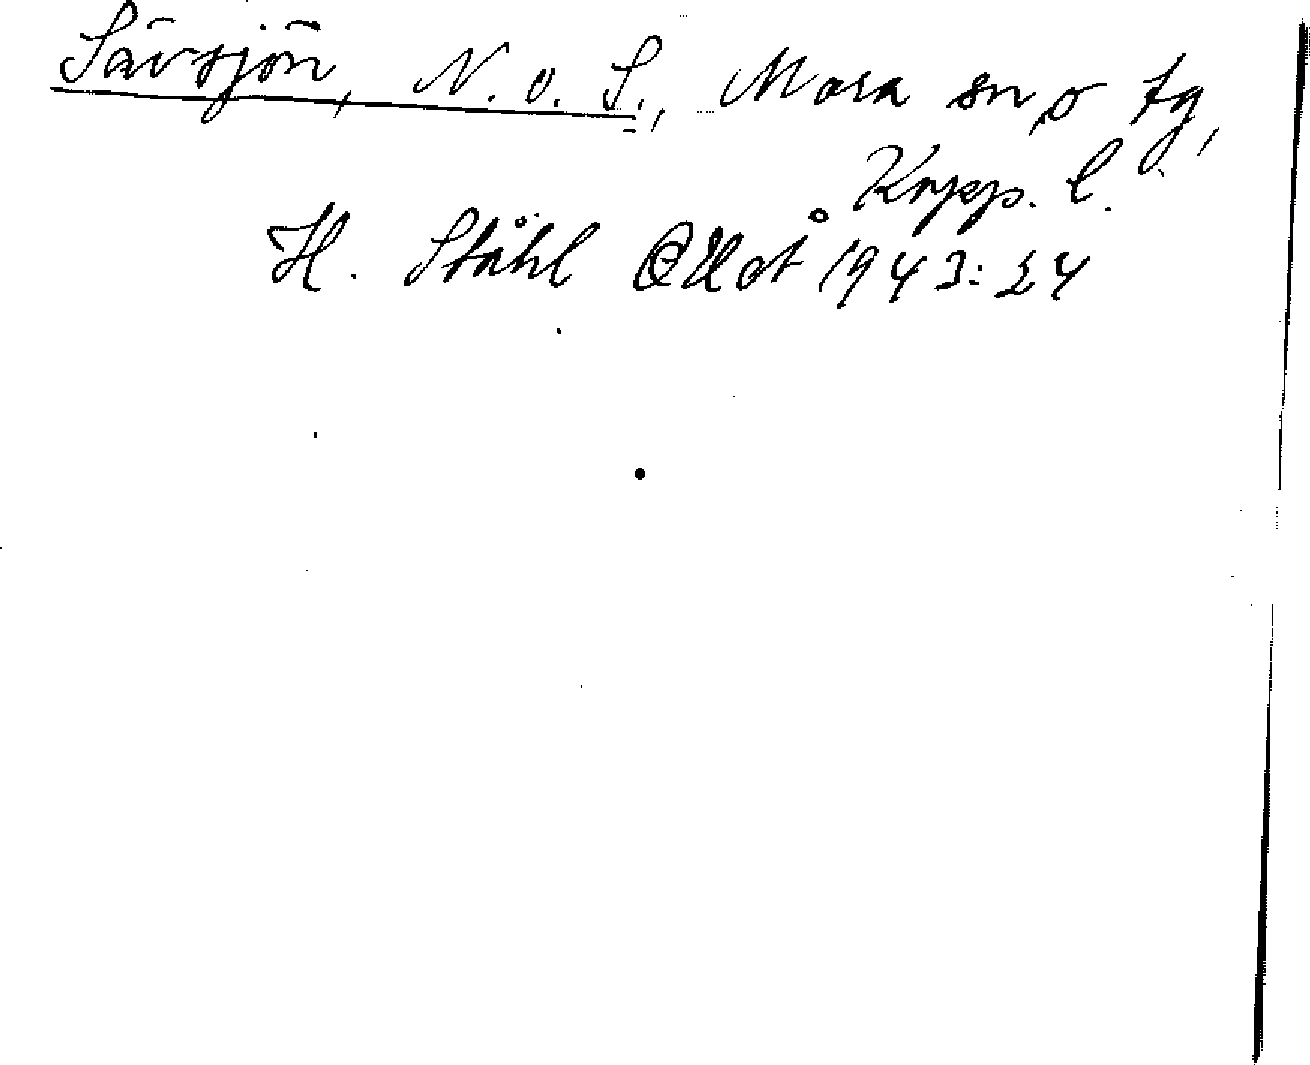 Sävsjön, N. o. S., Mora sn o tg,
Kopp. l.
H. Ståhl OUÅ 1943: 24